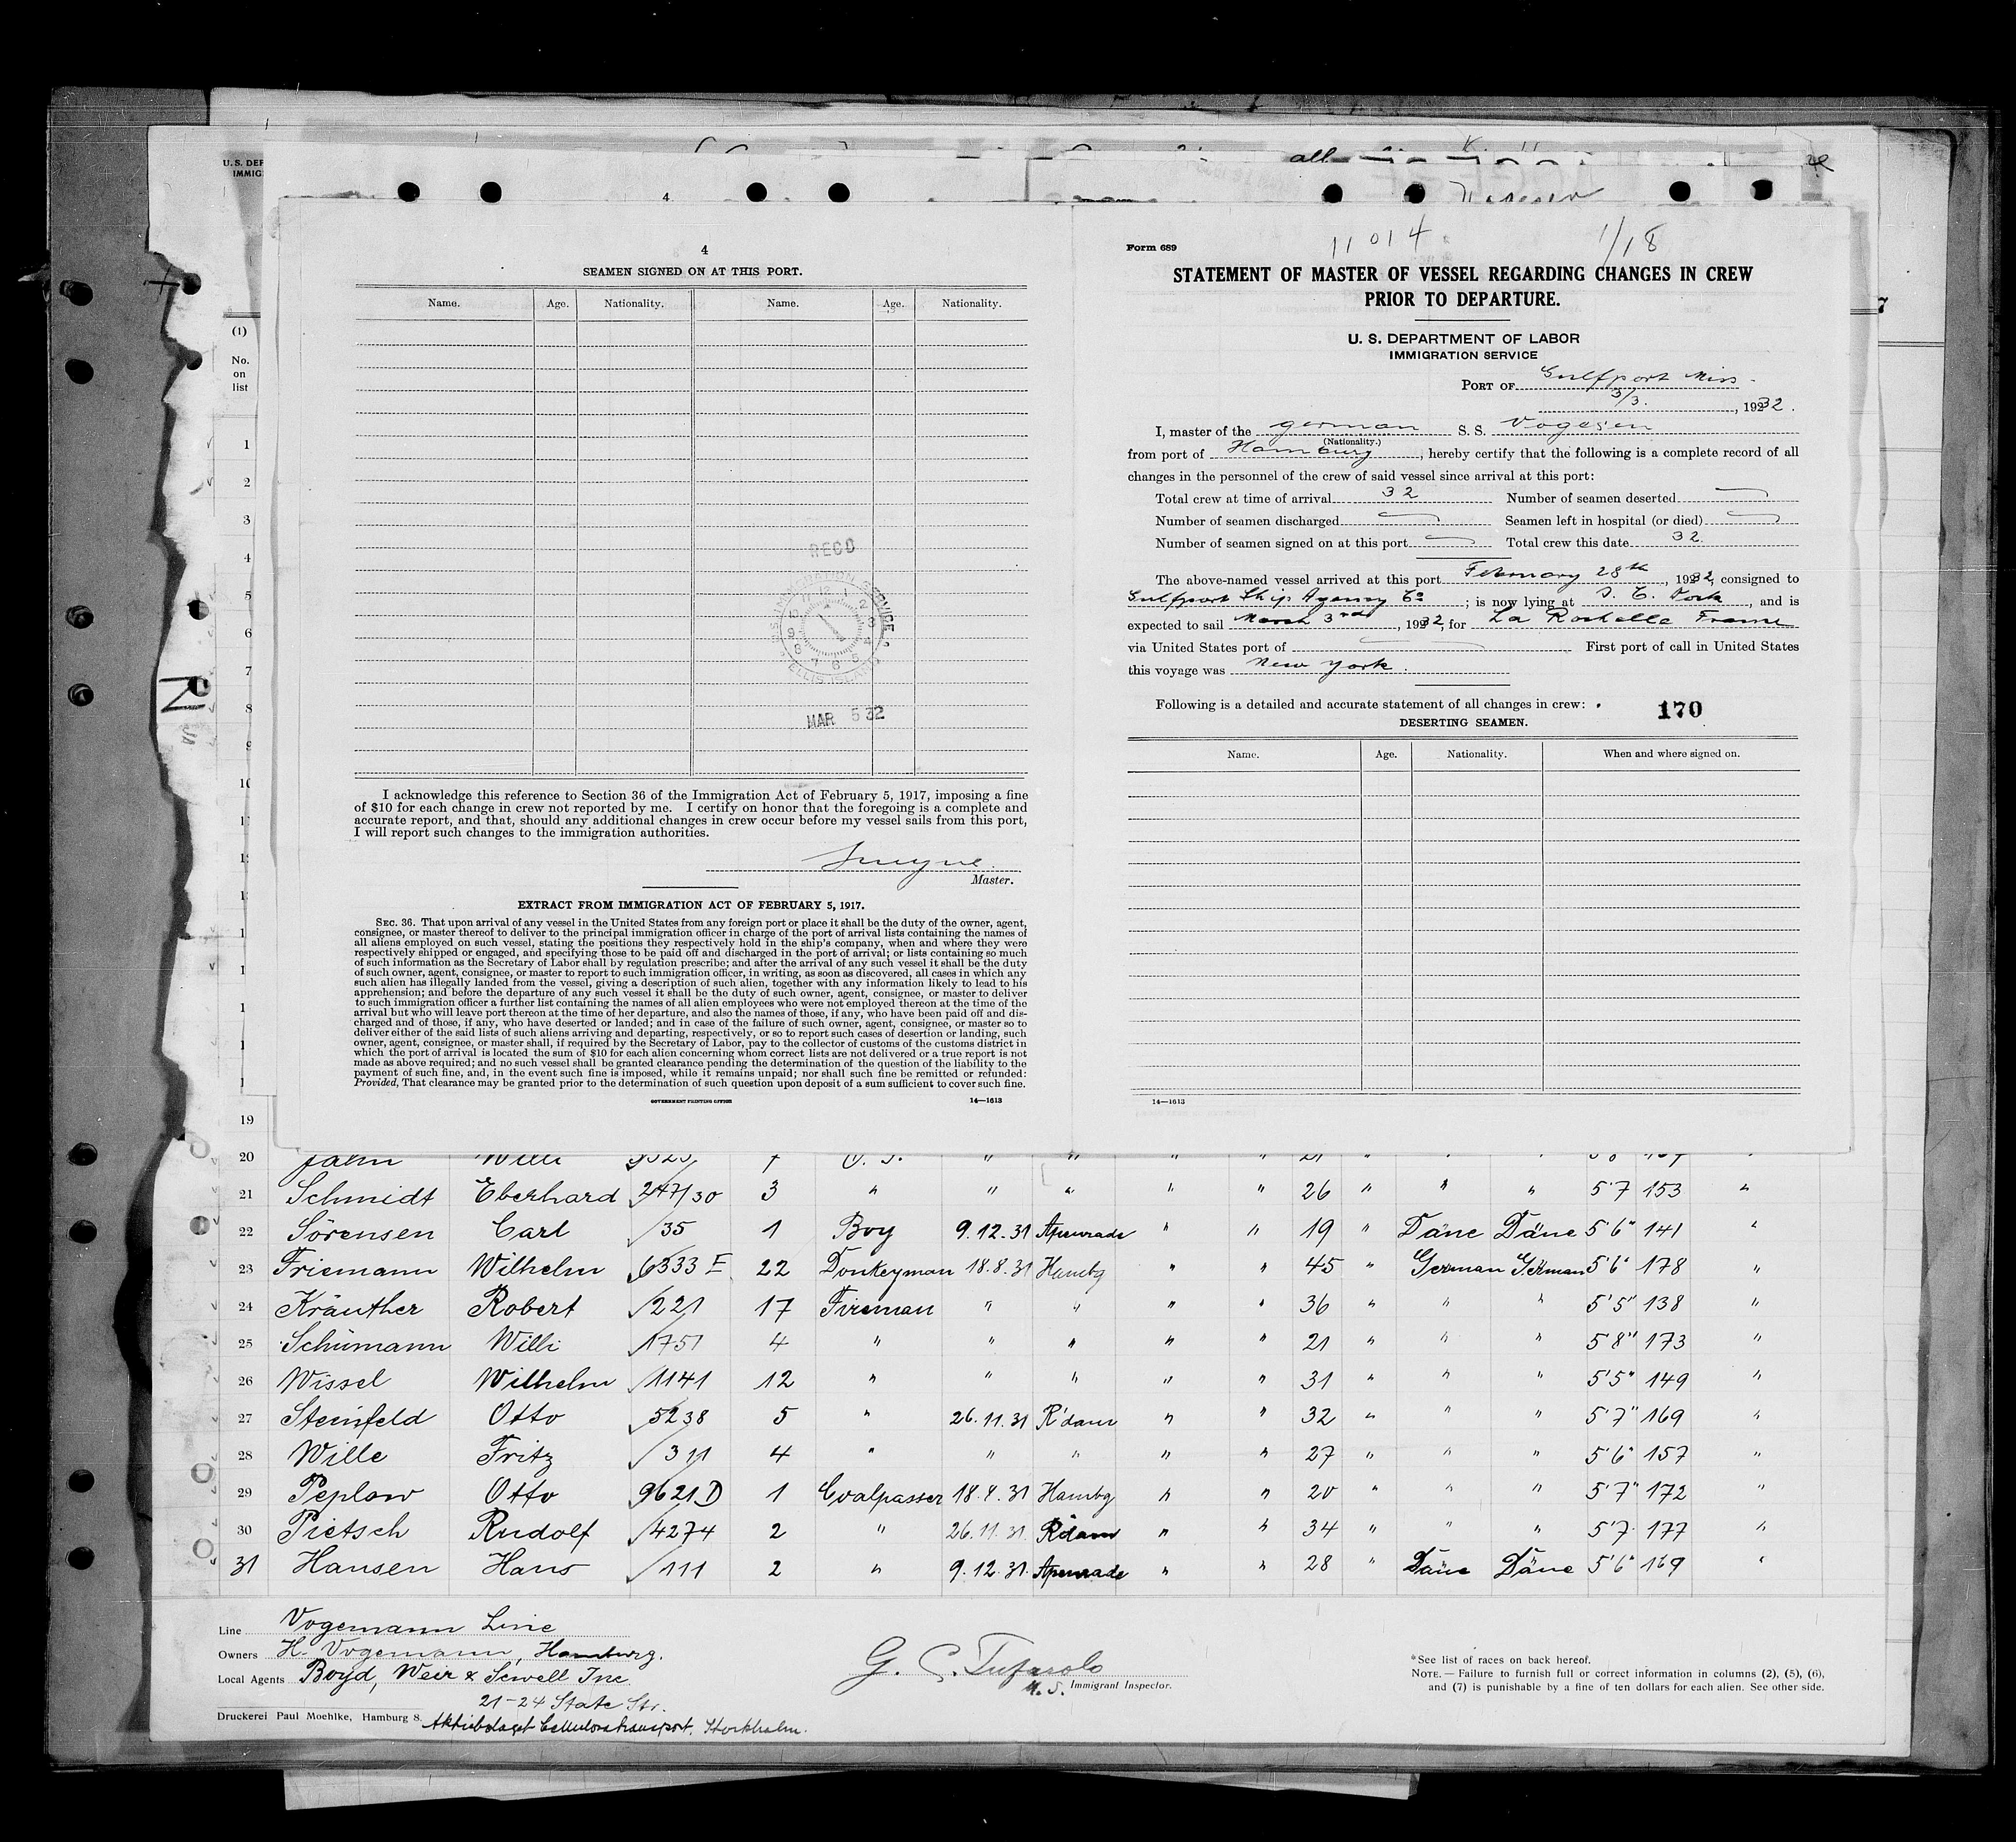 U. S. DEP
IMMIG
all
4
4
SEAMEN SIGNED ON AT THIS PORT.
Name. Age. Nationality. Name. Age. Nationality.
RECD
IMMIGRATION SERVICE
ELLIS ISLAND
MAR 5 32
I acknowledge this reference to Section 36 of the Immigration Act of February 5, 1917, imposing a fine
of $10 for each change in crew not reported by me. I certify on honor that the foregoing is a complete and
accurate report, and that, should any additional changes in crew occur before my vessel sails from this port,
I will report such changes to the immigration authorities.
Master.
EXTRACT FROM IMMIGRATION ACT OF FEBRUARY 5, 1917.
SEC. 36. That upon arrival of any vessel in the United States from any foreign port or place it shall be the duty of the owner, agent,
consignee, or master thereof to deliver to the principal immigration officer in charge of the port of arrival lists containing the names of
all aliens employed on such vessel, stating the positions they respectively hold in the ship's company, when and where they were
respectively shipped or engaged, and specifying those to be paid off and discharged in the port of arrival; or lists containing so much
of such information as the Secretary of Labor shall by regulation prescribe; and after the arrival of any such vessel it shall be the duty
of such owner, agent, consignee, or master to report to such immigration officer, in writing, as soon as discovered, all cases in which any
such alien has illegally landed from the vessel, giving a description of such alien, together with any information likely to lead to his
apprehension; and before the departure of any such vessel it shall be the duty of such owner, agent, consignee, or master to deliver
to such immigration officer a further list containing the names of all alien employees who were not employed thereon at the time of the
arrival but who will leave port thereon at the time of her departure, and also the names of those, if any, who have been paid off and dis-
charged and of those, if any, who have deserted or landed; and in case of the failure of such owner, agent, consignee, or master so to
deliver either of the said lists of such aliens arriving and departing, respectively, or so to report such cases of desertion or landing, such
owner, agent, consignee, or master shall, if required by the Secretary of Labor, pay to the collector of customs of the customs district in
which the port of arrival is located the sum of $10 for each alien concerning whom correct lists are not delivered or a true report is not
made as above required; and no such vessel shall be granted clearance pending the determination of the question of the liability to the
payment of such fine, and, in the event such fine is imposed, while it remains unpaid; nor shall such fine be remitted or refunded:
Provided, That clearance may be granted prior to the determination of such question upon deposit of a sum sufficient to cover such fine.
GOVERNMENT PRINTING OFFICE 14—1613
Form 689 11014 1/18
STATEMENT OF MASTER OF VESSEL REGARDING CHANGES IN CREW
PRIOR TO DEPARTURE.
U. S. DEPARTMENT OF LABOR
IMMIGRATION SERVICE
PORT OF Gulfport Miss.
3/3. , 1932.
I, master of the german S. S. Vogesen
(Nationality.)
from port of Hamburg, hereby certify that the following is a complete record of all
changes in the personnel of the crew of said vessel since arrival at this port:
Total crew at time of arrival 32 Number of seamen deserted —
Number of seamen discharged — Seamen left in hospital (or died) —
Number of seamen signed on at this port — Total crew this date 32
The above-named vessel arrived at this port February 28th, 1932, consigned to
Gulfport Ship Agency Co; is now lying at , and is
expected to sail March 3rd, 1932, for La Rochelle France
via United States port of — First port of call in United States
this voyage was New York.
Following is a detailed and accurate statement of all changes in crew:
170
DESERTING SEAMEN.
Name. Age. Nationality. When and where signed on.
14—1613
(1)
No.
on
list
1
2
3
4
5
6
7
8
9
19
20 Jahn Willi
21 Schmidt Eberhard 247/30 3 " " " " " 26 " " " 5'7 153 "
22 Sörensen Carl 35 1 Boy 9.12.31 Apenrade " " 19 " Däne Däne 5'6" 141 "
23 Friemann Wilhelm 6333 E 22 Donkeyman 18.8.31 Hambg " " 45 " German German 5'6" 178 "
24 Kräuther Robert 221 17 Fireman " " " " 36 " " " 5'5" 138 "
25 Schümann Willi 1751 4 " " " " " 21 " " " 5'8" 173 "
26 Wissel Wilhelm 1141 12 " " " " " 31 " " " 5'5" 149 "
27 Steinfeld Otto 5238 5 " 26.11.31 R'dam " " 32 " " " 5'7" 169 "
28 Wille Fritz 311 4 " " " " " 27 " " " 5'6" 157 "
29 Peplow Otto 9621D 1 Coalpasser 18.8.31 Hambg " " 20 " " " 5'7" 172 "
30 Pietsch Rudolf 4274 2 " 26.11.31. R'dam " " 34 " " " 5'7 177 "
31 Hansen Hans 111 2 " 9.12.31. Apenrade " " 28 " Däne Däne 5'6" 169 "
Line Vogemann Line
Owners H. Vogemann, Hamburg.
Local Agents Boyd, Weir & Sewell Inc
21-24 State Str.
Druckerei Paul Moehlke, Hamburg 8. Aktiebolaget Cellulosatransport, Stockholm.
Immigrant Inspector.
*See list of races on back hereof.
NOTE. — Failure to furnish full or correct information in columns (2), (5), (6),
and (7) is punishable by a fine of ten dollars for each alien. See other side.